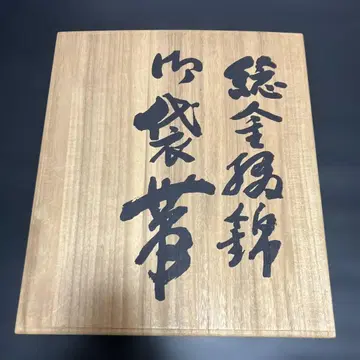 総金綴錦
御袋帯